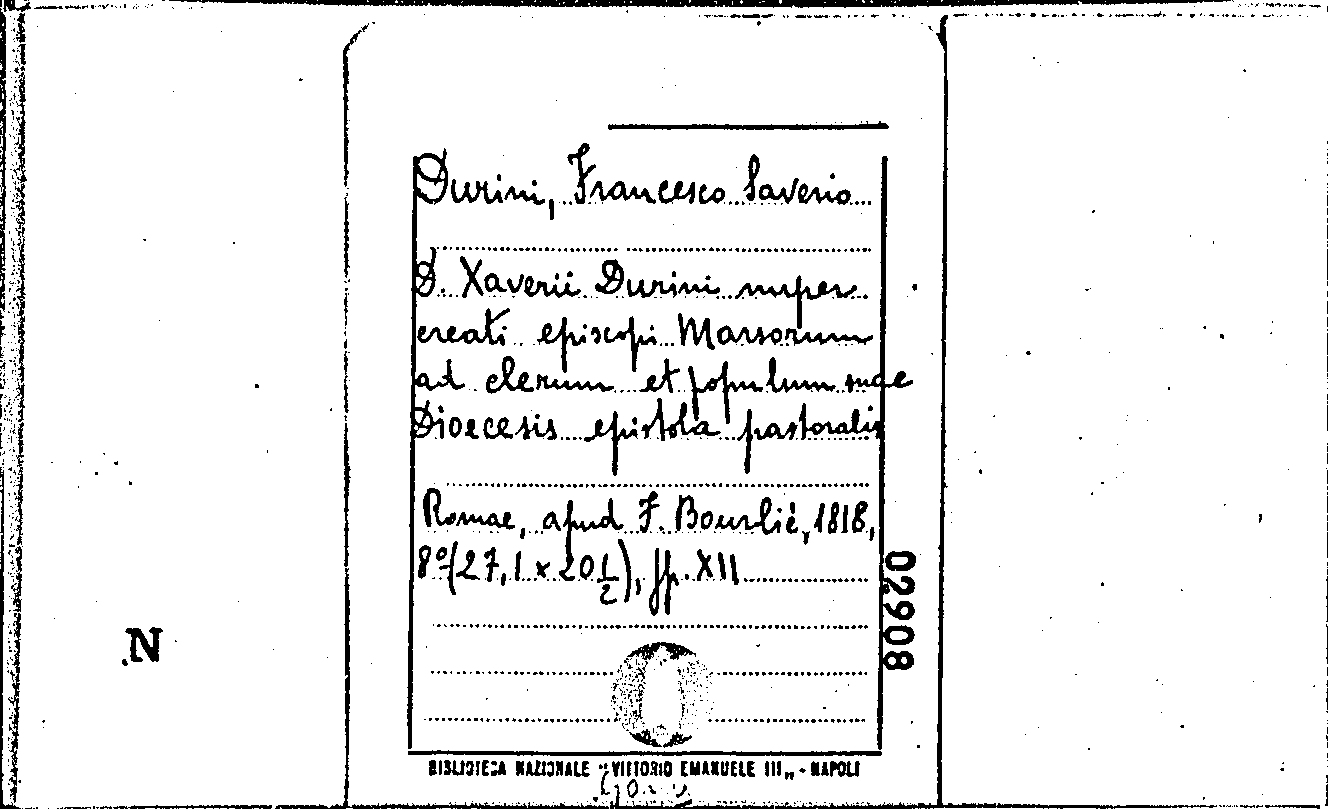 Durini, Francesco Saverio
D. Xaverii Durini nuper
creati episcopi Marsorum
ad clerum et populum suae
Dioecesis epistola pastoralis
Romae, apud F. Bourlié, 1818,
8º (27,1 x 20 1/2), pp. XII
02908
N
BIBLIOTECA NAZIONALE "VITTORIO EMANUELE III„ - NAPOLI